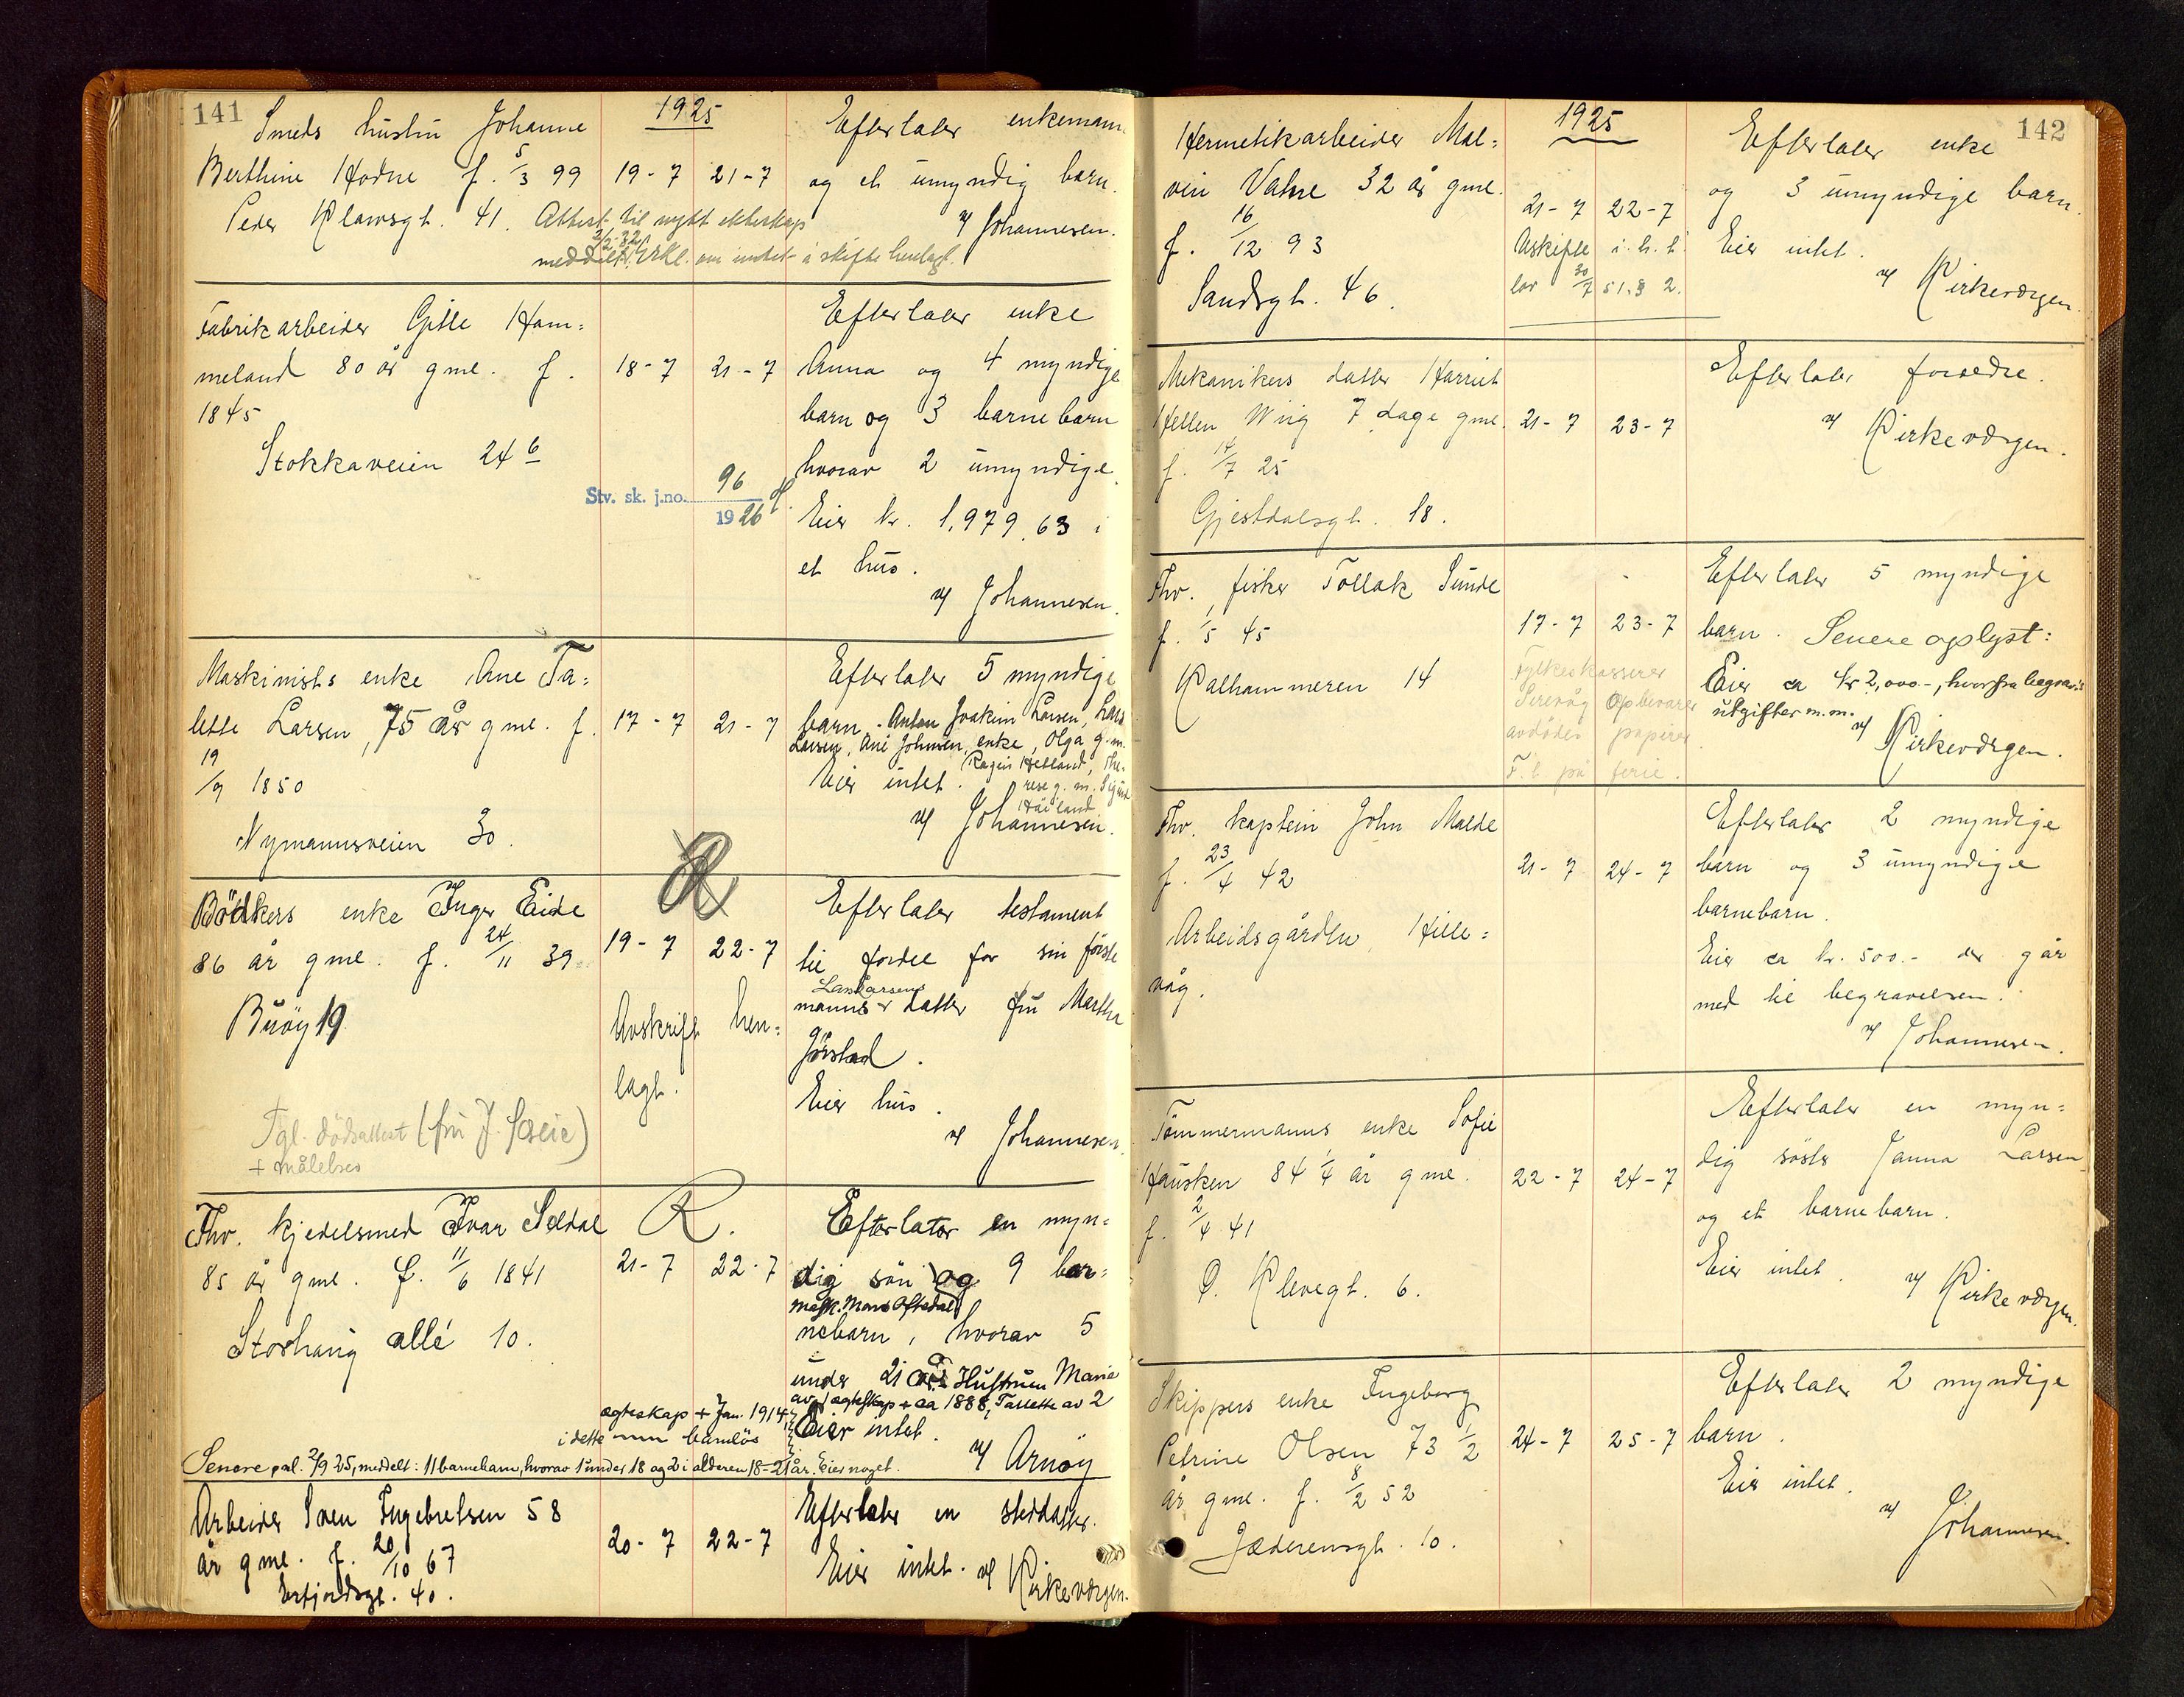 141
1925
Smeds hustru Johanne
Berthine Hodne f. 5/3 99
19-7 21-7
Efterlater enkemann
og et umyndig barn.
Peder Klowsgt. 41.
v/ Johannesen.
Attest til nytt ekteskap
meddelt 3/2-32. Erkl. om intet å skifte henlagt.
Fabrikarbeider Gitle Ham=
meland 80 år gml. f.
1845
Stokkaveien 24 b
18-7 21-7
Stv. sk. j.no. 96
1926
Efterlater enke
Anna og 4 myndige
barn og 3 barnebarn
hvorav 2 umyndige.
Eier kr. 1,979.63 i
et hus.
v/ Johannesen.
Maskinists enke Ane Ta=
lette Larsen, 75 år gml. f.
19/9 1850
Nymannsveien 30.
17-7 21-7
Efterlater 5 myndige
barn. Anton Joakim Larsen, Lars
Larsen, Ane Johnsen, enke, Olga g.m.
Ragin Helland, The-
rese g.m. Sigurd
Haviland
Eier intet.
v/ Johannesen.
Bödkers enke Inger Eide
86 år gml. f. 24/11 39
Buöy 19
19-7 22-7
Avskrift hen=
lagt.
R
Efterlater testament
til fordel for sin förste
manns datter fru Martha
Jörstad.
Eier hus.
v/ Johannesen.
Fgl. dödsattest (fru J. Sæie)
+ målebrev
Fhv. kjedelsmed Ivar Seldal
85 år gml. f. 11/6 1841
Storhaug allé 10.
R.
21-7 22-7
Efterlater en myn=
dig sön og 9 bar=
mask. Mons Oftedal
nebarn, hvorav 5
under 21 år. Hustruen Marie
av 1 ægteskap + ca 1888, Tallette av 2
ægteskap + Jan. 1914
i dette barnlös
Eier intet.
v/ Arnöy
Senere pal. 2/9 25, meddelt: 11 barnebarn, hvorav 1 under 18 og 2 i alderen 18-21 år. Eier noget.
Arbeider Sven Ingebretsen 58
år gml. f. 20/10 67
Erfjordsgt. 40.
20-7 22-7
Efterlater en steddatter.
Eier intet. v/ Kirkeværgen.
142
1925
Hermetikarbeider Mal=
vin Vatne 32 år gml.
f. 16/12 93
Sandsgt. 46.
21-7 22-7
Avskifte i.h.t.
lov 30/7 51 § 2.
Efterlater enke
og 3 umyndige barn.
Eier intet.
v/ Kirkeværgen.
Mekanikers datter Harriet
Hellen Wiig 7 dage gml.
f. 14/7 25
Gjestdalsgt. 18.
21-7 23-7
Efterlater foreldre.
v/ Kirkeværgen.
Fhv. fisker Tollak Sunde
f. 1/5 45
Kalhammeren 14
17-7 23-7
Fylkeskasserer
Serevåg opbevarer
avdödes papirer
F.t. på ferie.
Efterlater 5 myndige
barn. Senere oplyst:
Eier ca kr 2,000-, hvorfra begravels
utgifter m.m.
v/ Kirkeværgen.
Fhv. kaptein John Malde
f. 23/4 42
Arbeidsgården, Hille=
våg.
21-7 24-7
Efterlater 2 myndige
barn og 3 umyndige
barnebarn.
Eier ca kr. 500.- der går
med til begravelsen.
v/ Johannesen.
Tömmermanns enke Sofie
Hausken 84 1/4 år gml.
f. 2/4 41
Ö. Klevegt. 6.
22-7 24-7
Efterlater en myn=
dig söster Janna Larsen
og et barnebarn.
Eier intet.
v/ Kirkeværgen.
Skippers enke Ingeborg
Petrine Olsen 73 1/2
år gml. f. 8/2 52
Jæderensgt. 10.
24-7 25-7
Efterlater 2 myndige
barn.
Eier intet.
v/ Johannesen.